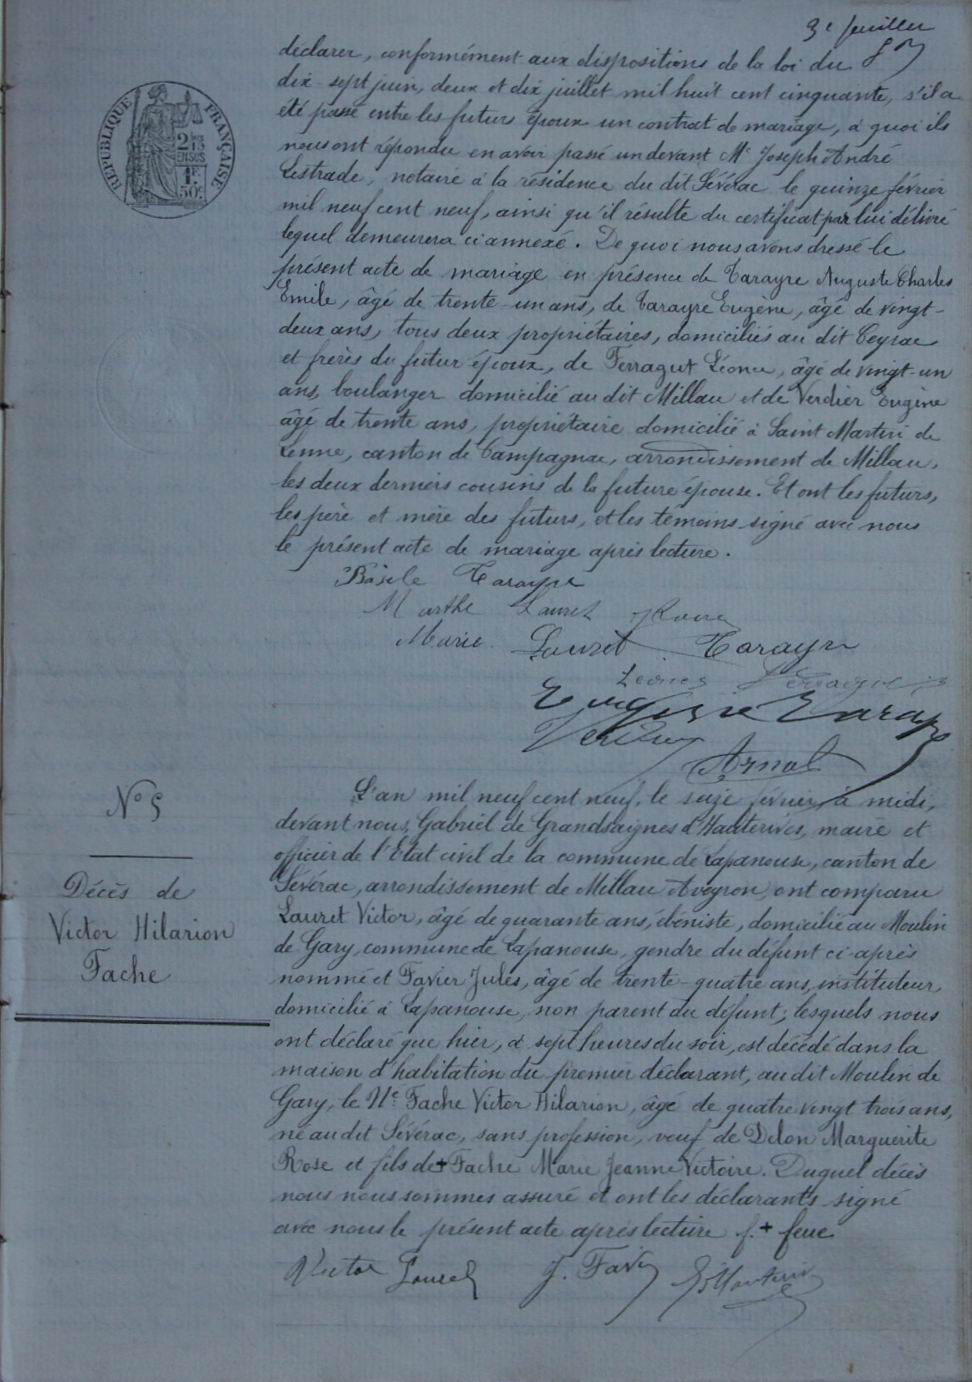 3e feuillet
déclarer, conformément aux dispositions de la loi du
dix-sept juin, deux et dix juillet mil huit cent cinquante, s'il a
été passé entre les futurs époux un contrat de mariage, à quoi ils
nous ont répondu en avoir passé un devant Me Joseph André
Lestrade, notaire à la résidence du dit Sévérac le quinze février
mil neuf cent neuf, ainsi qu'il résulte du certificat par lui délivré
lequel demeurera ci annexé. De quoi nous avons dressé le
présent acte de mariage en présence de Tarayre Auguste Charles
Emile, âgé de trente-un ans, de Tarayre Eugène, âgé de vingt-
deux ans, tous deux propriétaires, domiciliés au dit Ceyrac
et frères du futur époux, de Ferragut Léonce, âgé de vingt-un
ans, boulanger domicilié au dit Millau et de Verdier Eugène
âgé de trente ans, propriétaire domicilié à Saint Martin de
Lenne, canton de Campagnac, arrondissement de Millau,
les deux derniers cousins de la future épouse. Et ont les futurs,
les père et mère des futurs, et les témoins signé avec nous
le présent acte de mariage après lecture.
Basile Tarayre
Marthe Lauret
Marie Lauret Tarayre
Léonce Ferragut
Eugénie Tarayre
Verdier
Arnal
REPUBLIQUE FRANÇAISE
2/10 EN SUS
1F 50c
No 5
Décès de
Victor Hilarion
Fache
L'an mil neuf cent neuf, le seize février à midi,
devant nous, Gabriel de Grandsaignes d'Hauterives, maire et
officier de l'Etat civil de la commune de Lapanouse, canton de
Sévérac, arrondissement de Millau Aveyron, ont comparu
Lauret Victor, âgé de quarante ans, ébéniste, domicilié au Moulin
de Gary, commune de Lapanouse, gendre du défunt ci-après
nommé et Favier Jules, âgé de trente-quatre ans, instituteur,
domicilié à Lapanouse, non parent du défunt; lesquels nous
ont déclaré que hier, à sept heures du soir, est décédé dans la
maison d'habitation du premier déclarant, au dit Moulin de
Gary, le Ne Fache Victor Hilarion, âgé de quatre vingt trois ans,
né au dit Sévérac, sans profession, veuf de Delon Marguerite
Rose et fils de + Fache Marie Jeanne Victoire. Duquel décès
nous nous sommes assuré et ont les déclarants signé
avec nous le présent acte après lecture f. + feue
Victor Lauret J. Favier